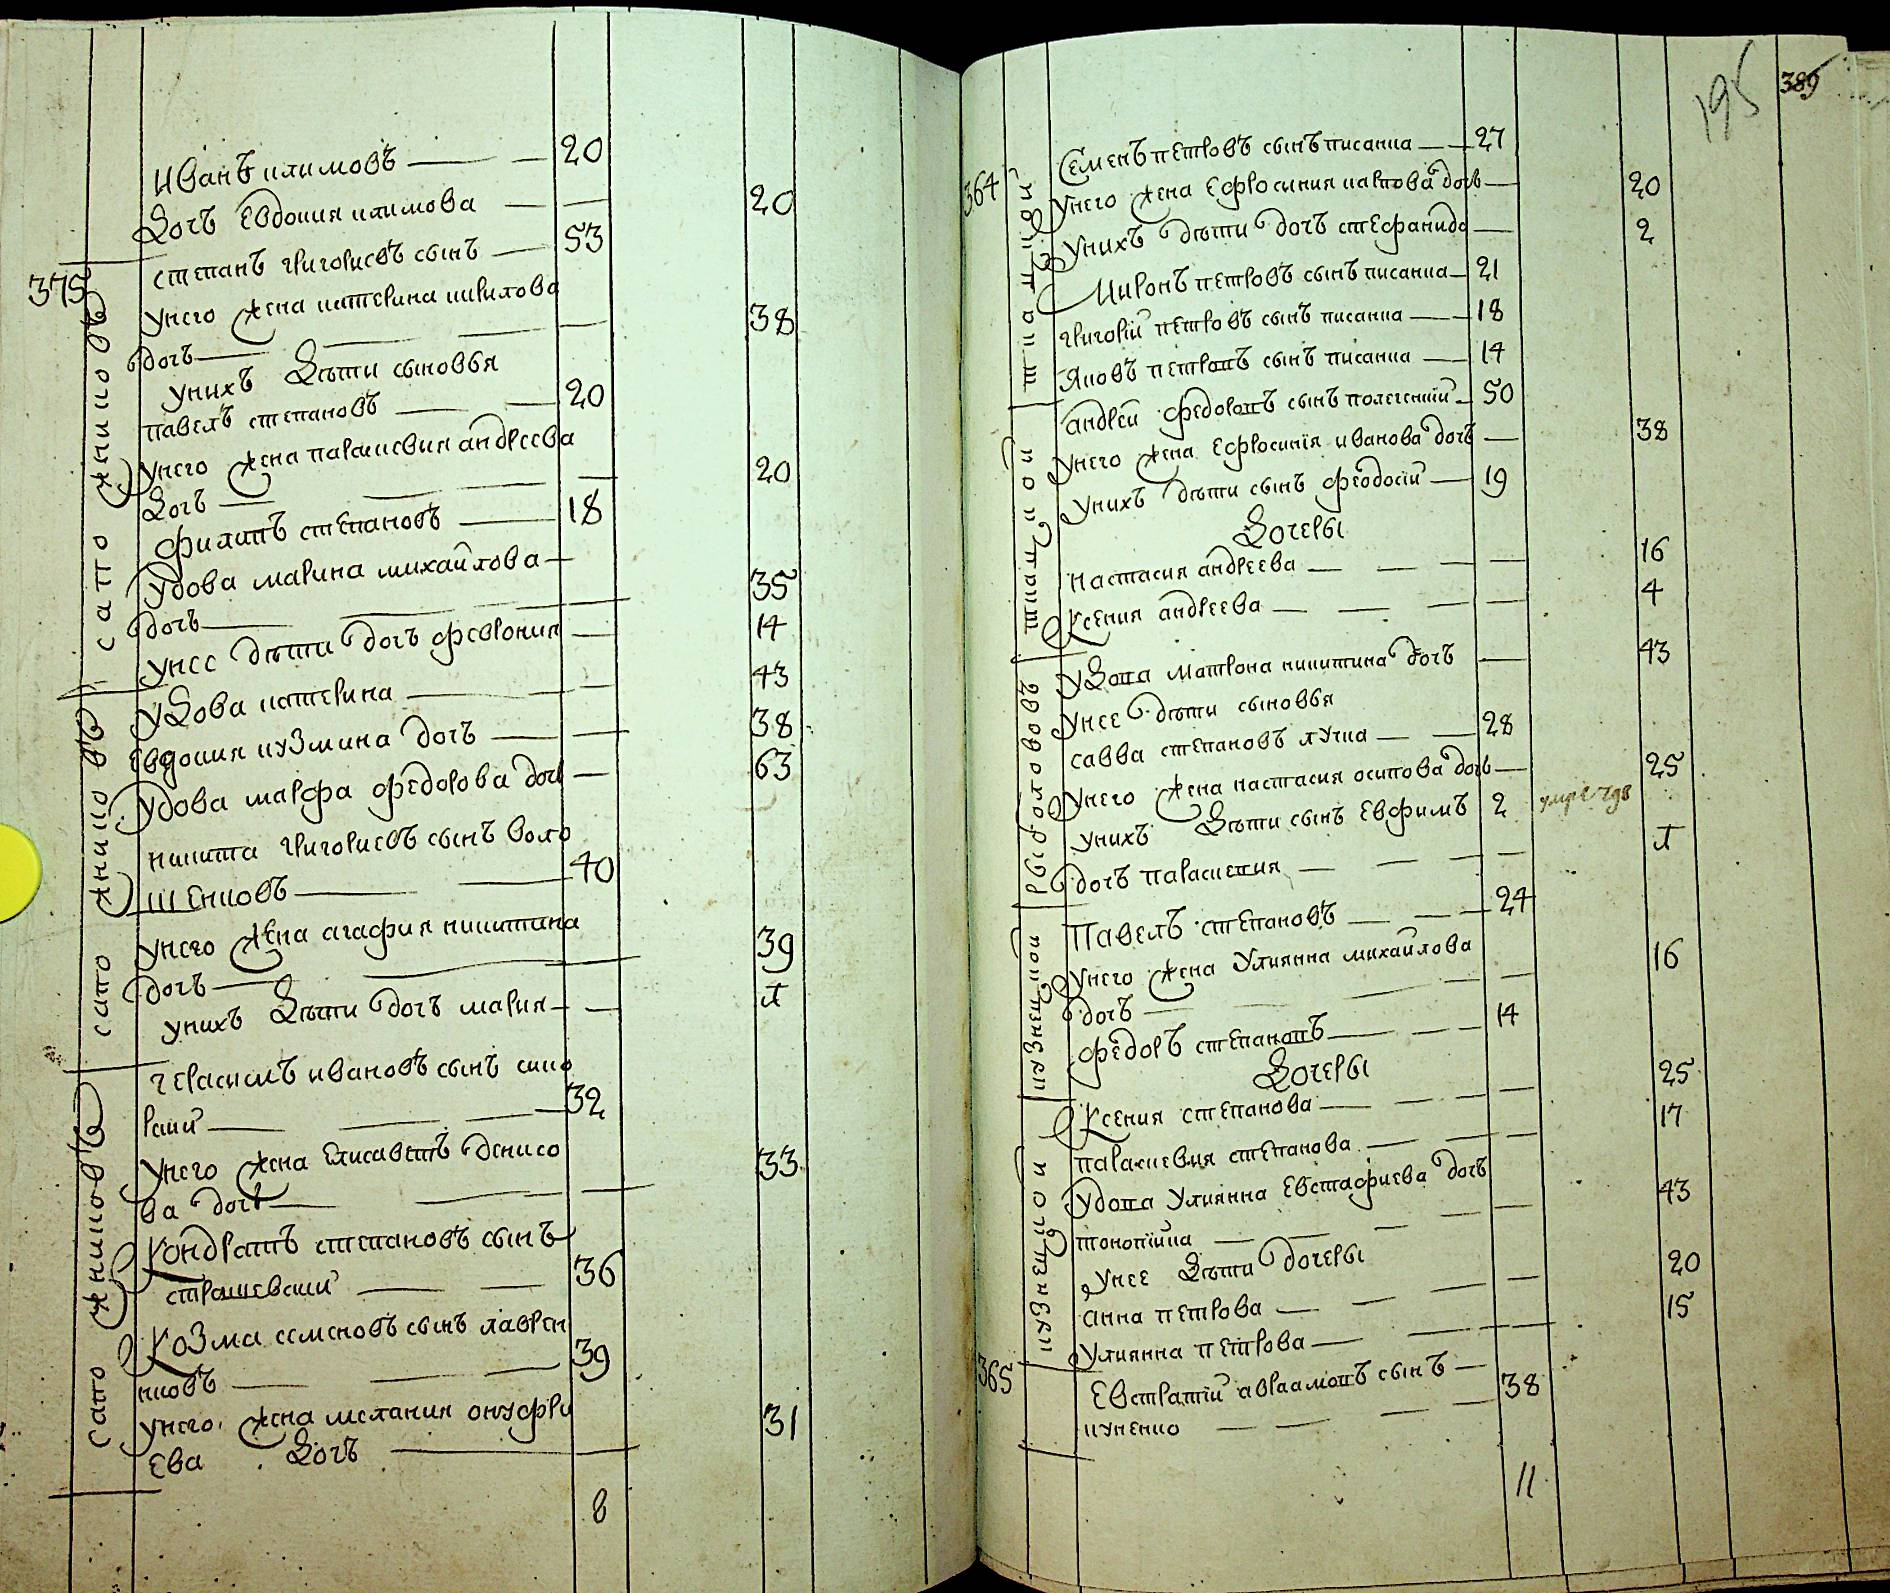 Иванъ климовъ 20
Дочъ Евдокия климова 20
375 степанъ григориевъ сынъ 53
унего жена катерина кирилова
дочъ 38
унихъ Дѣти сыновья
павелъ степановъ 20
унего жена параскевия андреева
Дочъ 20
филипъ степановъ 18
удова марина михайлова
дочъ 35
унее дѣти дочъ феврония 14
сапожниковъ
уДова катерина 43
Евдокия кузмина дочъ 38
Удова марфа федорова дочъ 63
никита григориевъ сынъ воло
шенковъ 40
унего жена агафия никитина
дочъ 39
унихъ Дѣти дочъ мария
сапожниковъ
герасимъ ивановъ сынъ сико
рский 32
унего жена Елисаветъ денисо
ва дочъ 33
Кондратъ степановъ сынъ
страшевский 36
Козма семеновъ сынъ лаврен
ковъ 39
унего жена мелания онуфри
ева Дочъ 31
сапожниковъ
8
195 389
364 Семенъ петровъ сынъ писанка 27
унего жена Ефросиния карпова дочъ 20
унихъ дѣти дочъ стефанида 2
Миронъ петровъ сынъ писанка 21
григорий петровъ сынъ писанка 18
Яковъ петровъ сынъ писанка 14
андрей федоровъ сынъ полегенкий 50
унего жена Ефросиния иванова дочъ 38
унихъ дѣти сынъ феодосий 19
Дочеры
настасия андреева 16
Ксения андреева 4
ткацкой
уДова матрона никитина дочъ 43
унее дѣти сыновья
савва степановъ лучка 28
унего жена настасия осипова дочъ 25
унихъ Дѣти сынъ Евфимъ 2
дочъ параскевия
рыболововъ
Павелъ степановъ 24
унего жена Улиянна михайлова
дочъ 16
федоръ степановъ 14
Дочеры
кузнецкой
Ксения степанова 25
параскевия степанова 17
удова Улиянна Евстафиева дочъ 43
унее Дѣти дочеры
анна петрова 20
улиянна петрова 15
кузнецкой
365 Евстратий авраамовъ сынъ
куненко 38
11